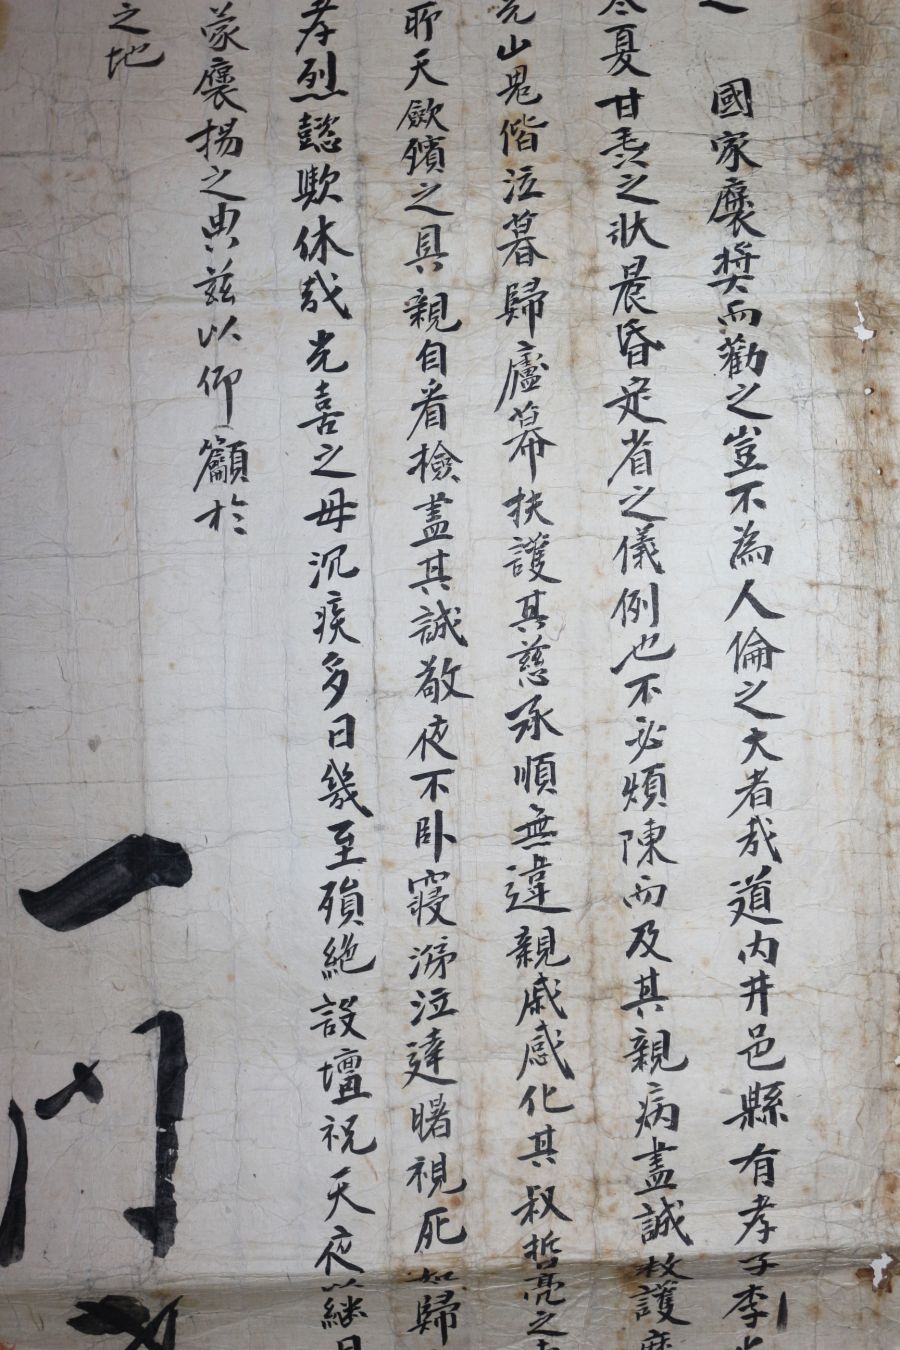 國家褒奬而勸之豈不為人倫之大者哉道內井邑縣有孝子李
夏甘毳之狀晨昏定省之儀例也不必煩陳而及其親病盡誠救護
山鬼偕泣暮歸廬幕扶護其慈承順無違親戚感化其叔哲亮之
聊天斂殯之具親自看檢盡其誠敬夜不卧寢涕泣達曙視死如歸
孝烈懿歟休哉光喜之母沉疾多日幾至殞絶設壇祝天夜以繼日
蒙褒揚之典玆以仰籲於
之地
一門